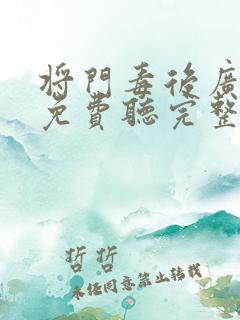 將門毒後廣
免費聽完整
哲哲
未經同意禁止轉載